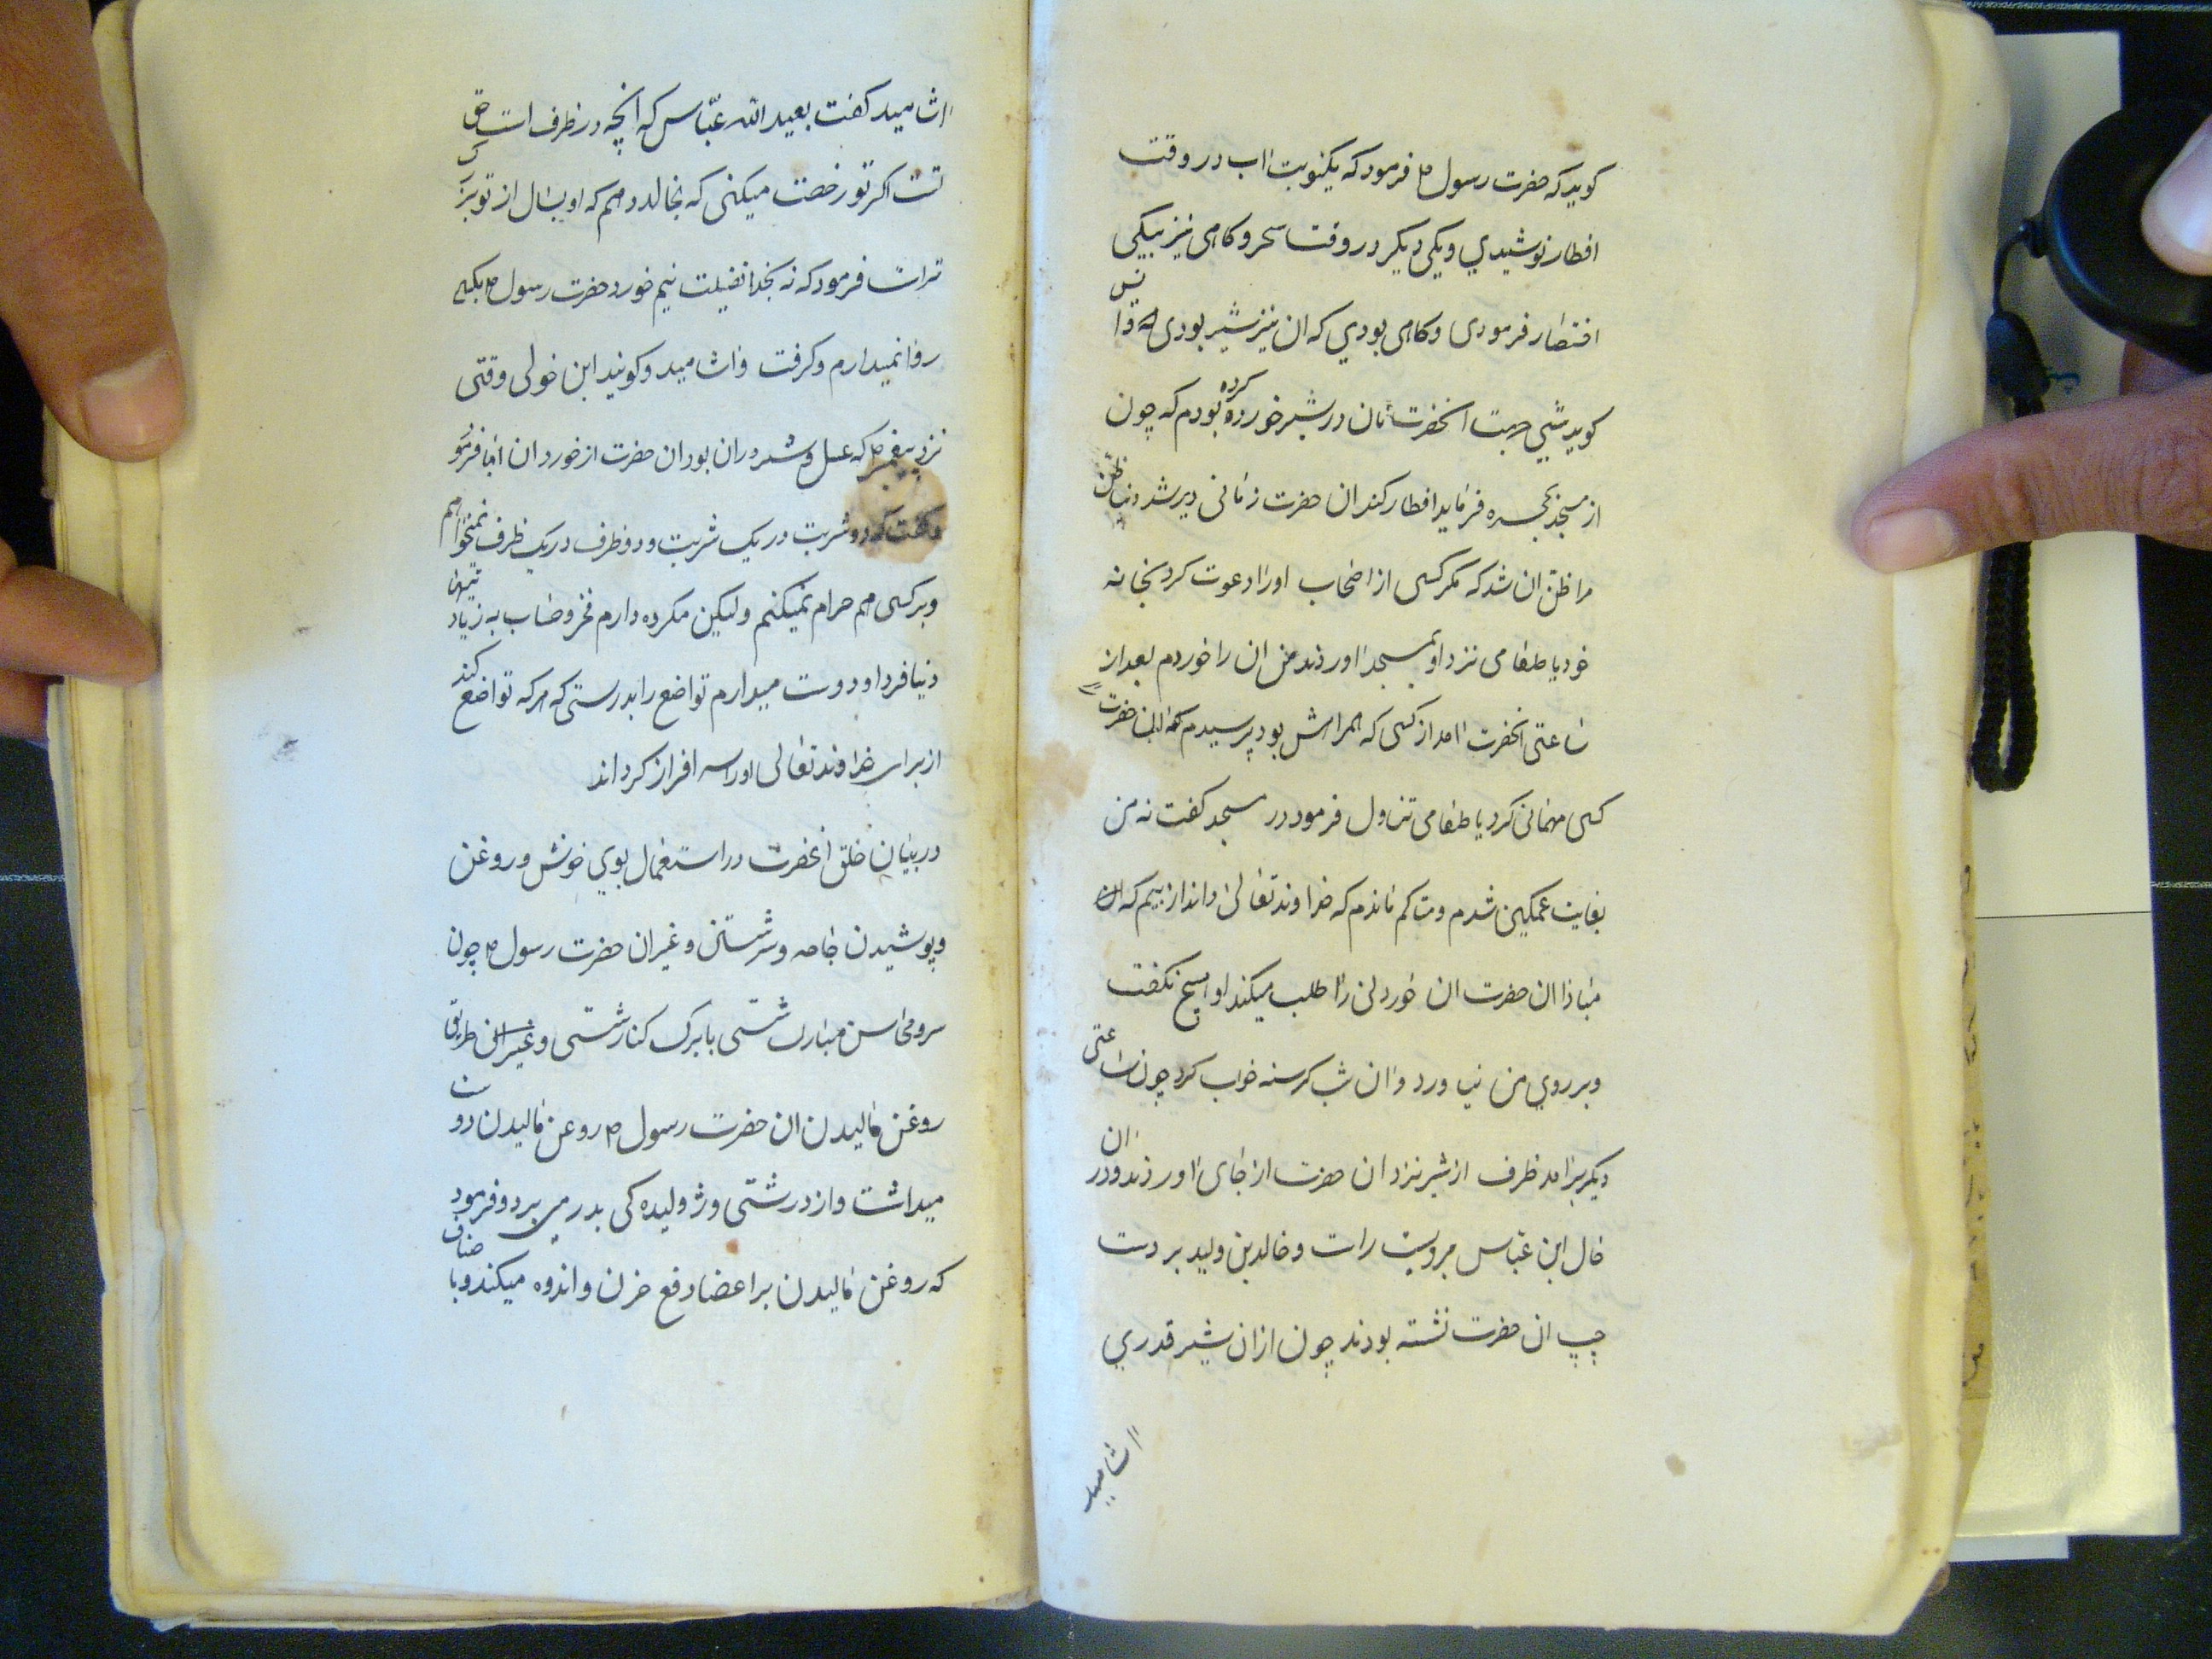 کوید که حضرت رسول م فرمود که یکنوبت اب در وقت
افطار نوشیدی و یکی دیکر در وقت سحر و کاهی نیز بیکی
افتطار فرمودی و کاهی بودی که ان نیز شیر بودی
کوید شبی جهت انحضرت نان در شیر خورده کرده بودم که چون
از مسجد بحجره فرماید افطار کند ان حضرت زمانی دیر شد
مرا ظن ان شد که مکر کسی از اصحاب اورا دعوت کرد بخانه
خود یا طعامی نزد او بمسجد اوردند من ان را خوردم بعد از
ساعتی انحضرت امد از کسی که همراهش بود پرسیدم که این حضرت
کسی مهمانی کرد یا طعامی تناول فرمود در مسجد کفت نه من
بغایت غمکین شدم و متاکم ماندم که خداوند تعالی داند از بیم که
مبادا ان حضرت ان خوردنی را طلب میکند او هیچ نکفت
و بر روی من نیاورد و ان شب کرسنه خواب کرد چون ساعتی
دیکر برامد ظرف از شیر نزد ان حضرت از جای اوردند و در ان
حال ابن عباس بر دست راست و خالد بن ولید بر دست
چپ ان حضرت نشسته بودند چون از ان شیر قدری
اشامید
اشامید کفت بعبد الله عباس که انچه در ظرف است حق
تست اکر تو رخصت میکنی که بخالد دهم که او بسال از تو بزرک
تراست فرمود که نه بخدا فضیلت نیم خورد حضرت رسول م بکسی
روا نمیدارم و کرفت و اشامید و کویند ابن خولی وقتی
نزد پیغمبر م که عسل و شیر در ان بود ان حضرت از خوردن ان ابا فرمود
و کفت که دو شربت در یک شربت و دو ظرف در یک ظرف نمیخواهم
و بر کسی هم حرام نمیکنم ولیکن مکروه دارم فخر و حساب به زیادتیهای
دنیا فردا و دوست میدارم تواضع را بدرستی که هر که تواضع کند
از برای خداوند تعالی اورا سر افراز کرداند
در بیان خلق انحضرت در استعمال بوی خوش و روغن
و پوشیدن جامه و سر شستن و غیر ان حضرت رسول م چون
سر و محاسن مبارک شستی با برک کنار شستی و غیر ان طریق
روغن مالیدن ان حضرت رسول م روغن مالیدن دوست
میداشت و از درشتی و ژولیده کی بدر می برد و فرمود
که روغن مالیدن بر اعضا دفع حزن و اندوه میکند و با صناف